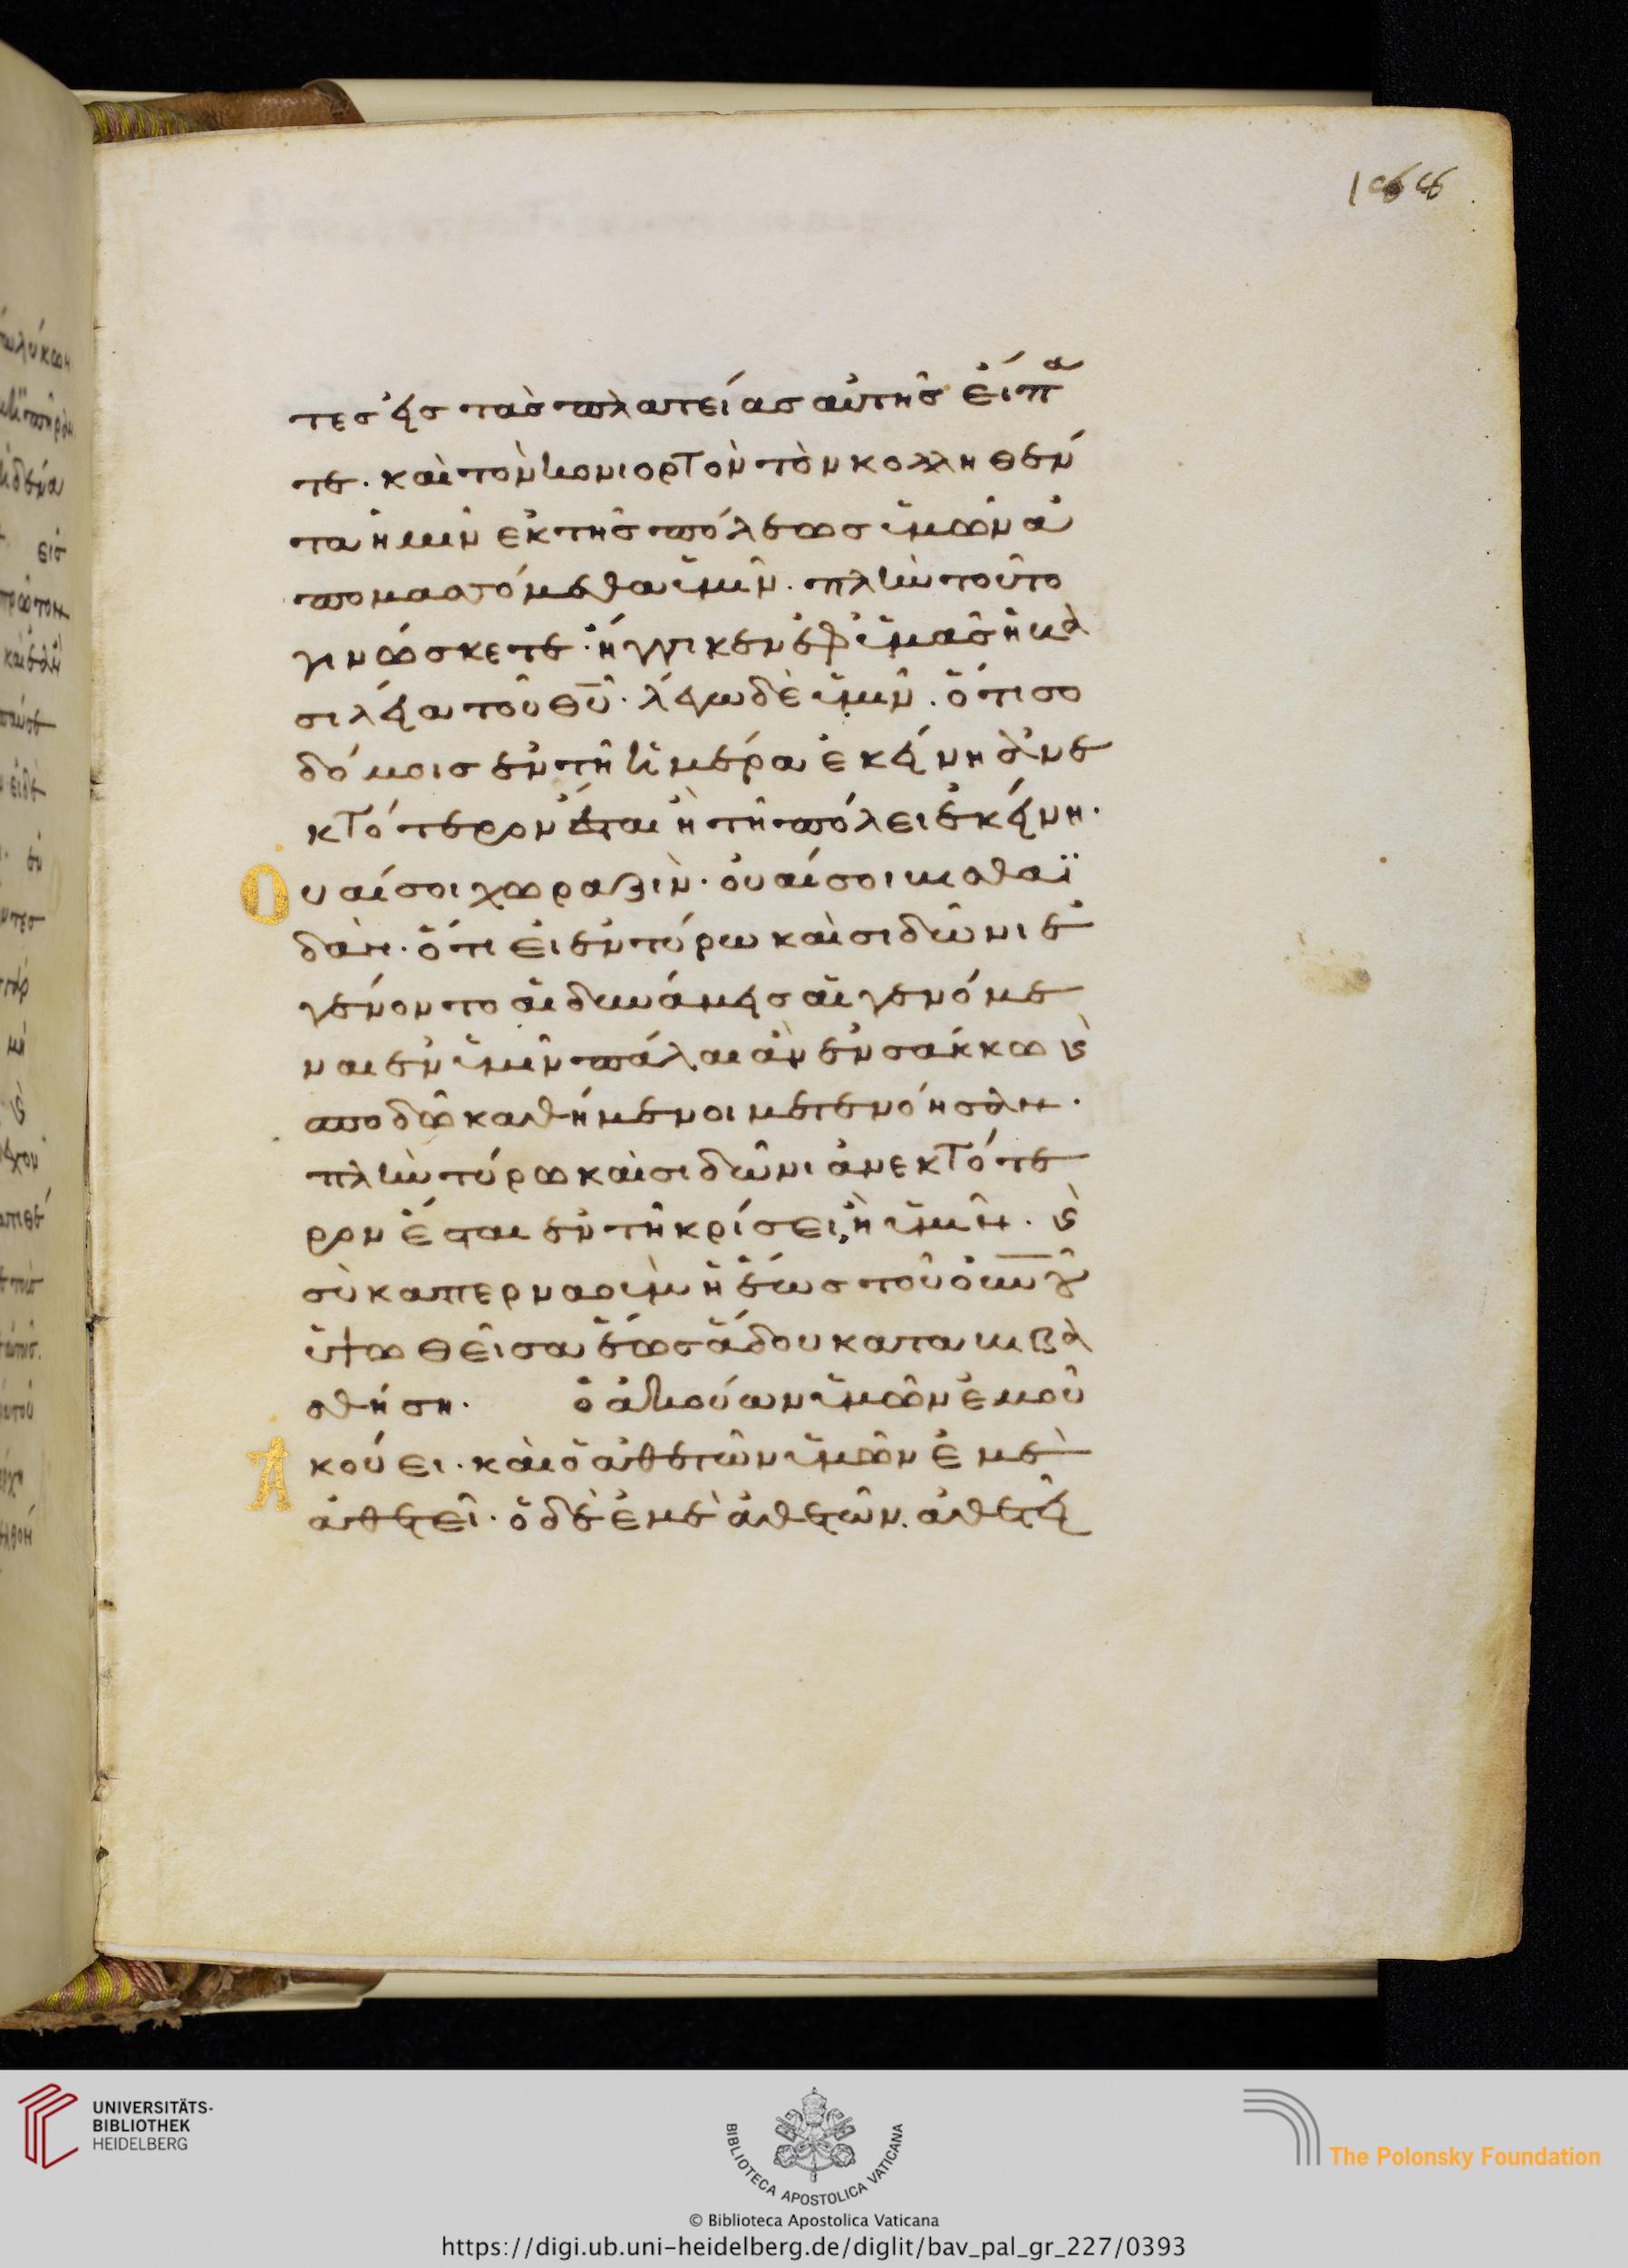 166
τες εἰς τὰς πλατείας αὐτῆς εἴπα
τε· καὶ τὸν κονιορτὸν τὸν κολληθέν
τα ἡμῖν ἐκ τῆς πόλεως ὑμῶν ἀ
πομασσόμεθα ὑμῖν· πλὴν τοῦτο
γινώσκετε· ἤγγικεν ἐφ ὑμᾶς ἡ βα
σιλεία τοῦ θῦ· λέγω δὲ ὑμῖν· ὅτι σο
δόμοις ἐν τῇ ἡμέρα ἐκείνη ἀνε
κτότερον ἔσται ἢ τῇ πόλει ἐκείνη·
Ουαί σοι χωραζὶν· οὐαί σοι βηθσαϊ
δὰν· ὅτι εἰ ἐν τύρω καὶ σιδῶνι ἐ
γένοντο αἱ δυνάμεις αἱ γενόμε
ναι ἐν ὑμῖν πάλαι ἂν ἐν σάκκω καὶ
σποδῶ καθήμενοι μετενόησαν·
πλὴν τύρω καὶ σιδῶνι ἀνεκτότε
ρον ἔσται ἐν τῇ κρίσει, ἢ ὑμῖν· καὶ
σὺ καπερναοὺμ ἡ ἕως τοῦ οὐνοῦ
ὑψωθεῖσα ἕως ἅδου καταβιβα
σθήση· ὁ ἀκούων ὑμῶν ἐμοῦ
Ἀκούει· καὶ ὁ ἀθετῶν ὑμῶν ἐμὲ
ἀθετεῖ· ὁ δὲ ἐμὲ ἀθετῶν. ἀθετεῖ
UNIVERSITÄTS-
BIBLIOTHEK
HEIDELBERG
BIBLIOTECA APOSTOLICA VATICANA
The Polonsky Foundation
© Biblioteca Apostolica Vaticana
https://digi.ub.uni-heidelberg.de/diglit/bav_pal_gr_227/0393